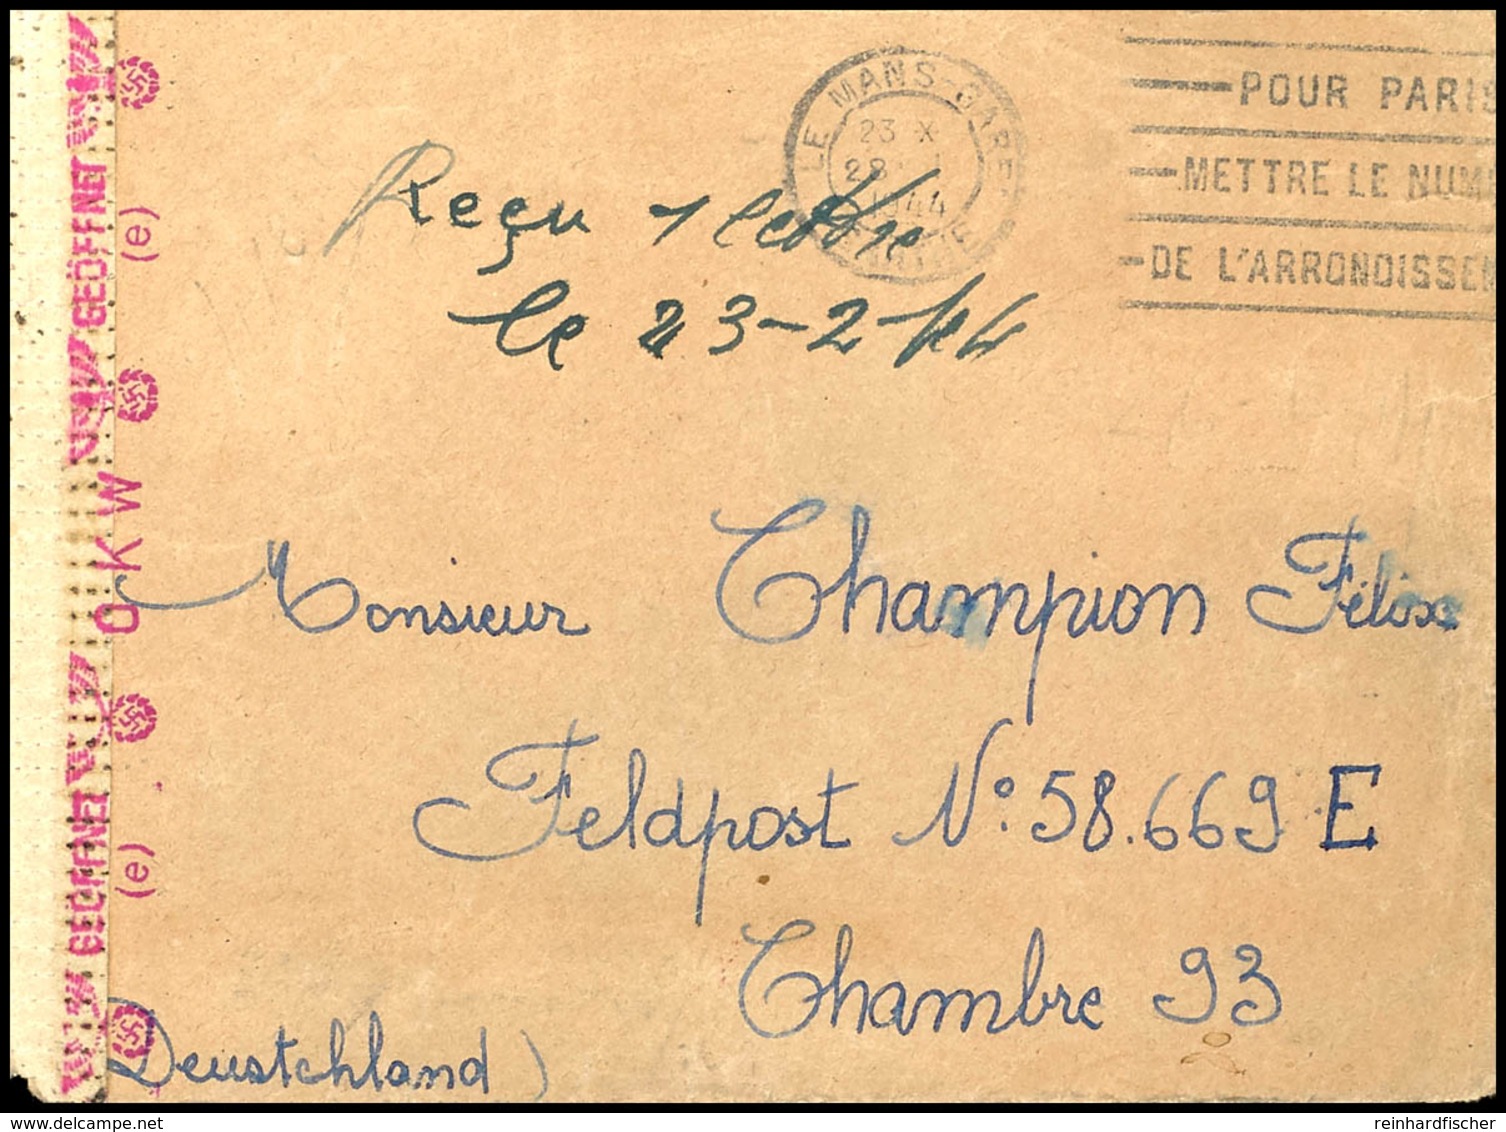 LE MANS-GARE
23 X
28 I
1944
SARTHE
POUR PARIS
METTRE LE NUM
DE L'ARRONDISSEM
Reçu 1 lettre
le 23-2-44
GEÖFFNET
(e)
OKW
GEÖFFNET
(e)
Monsieur Champion Félix
Feldpost N° 58.669 E
Chambre 93
Deustchland)
www.delcampe.net
reinhardfischer